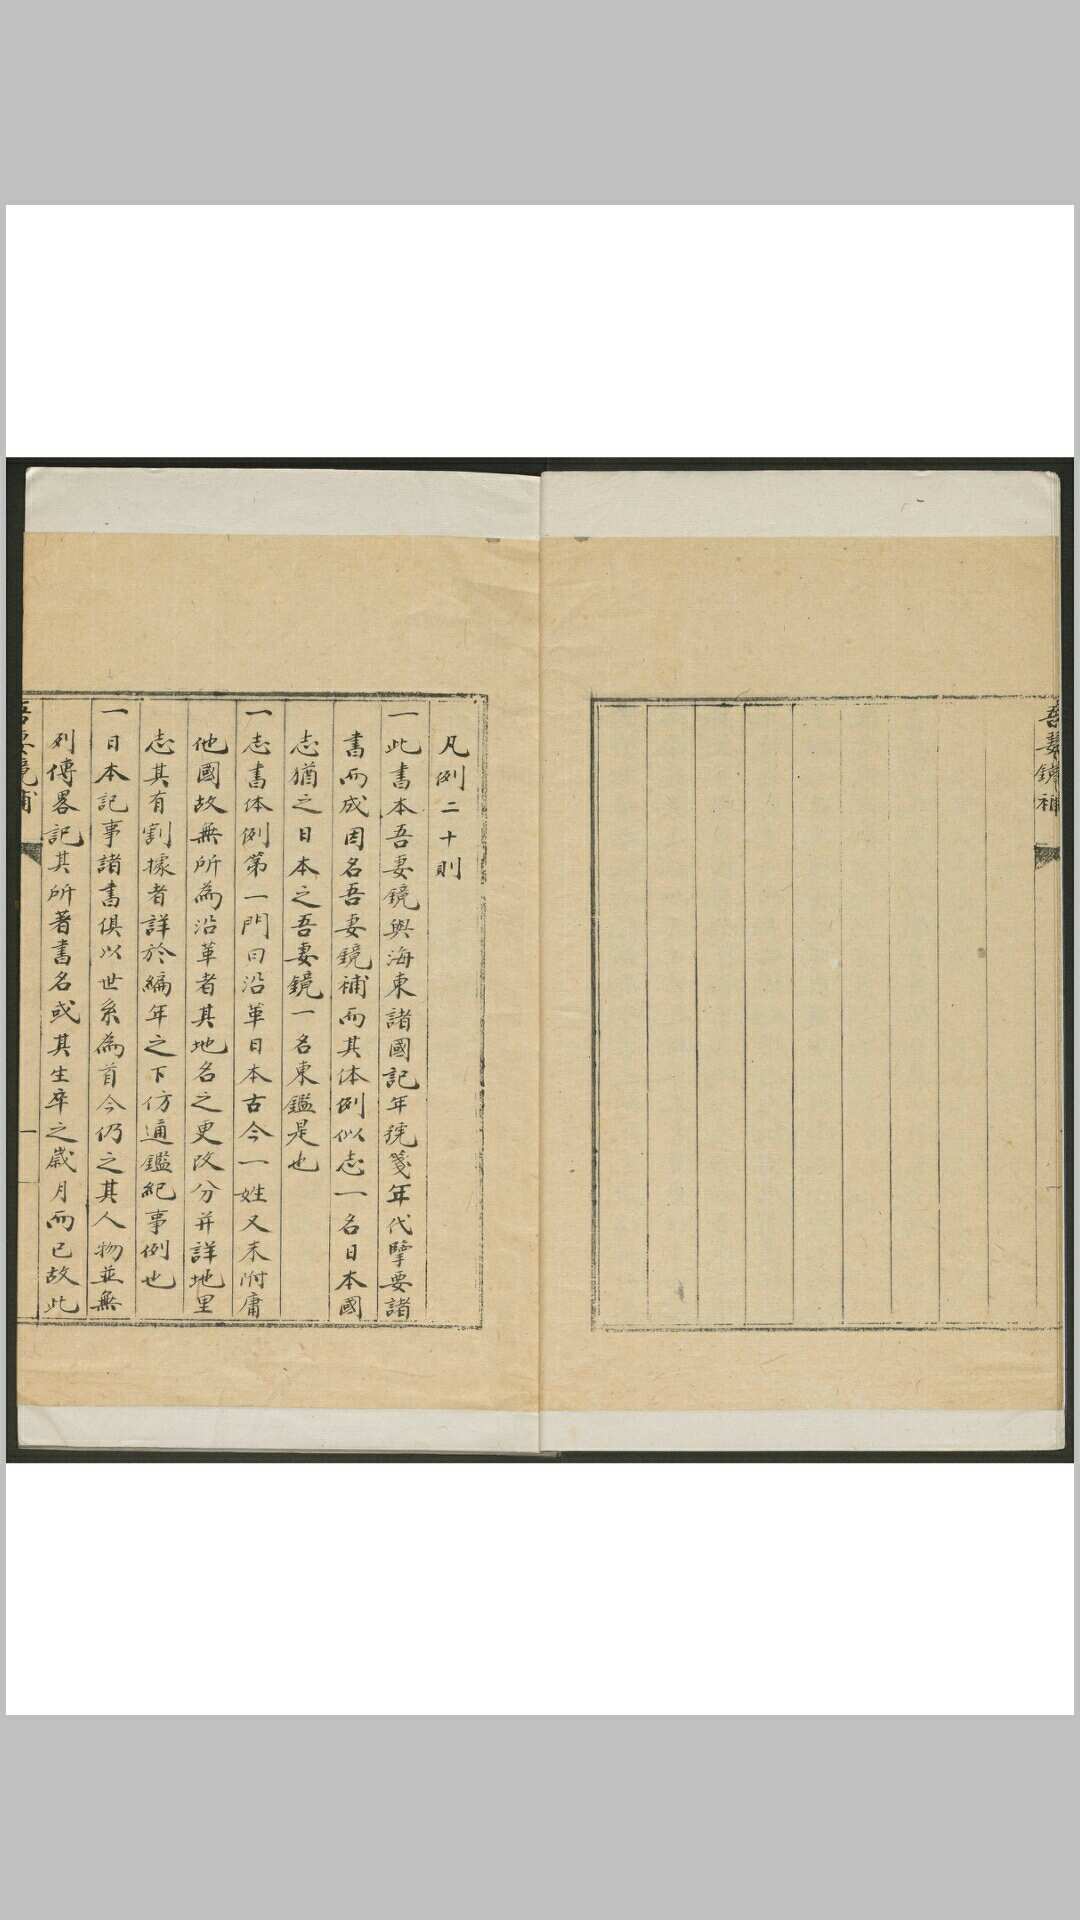 吾妻鏡補
凡例二十則
一此書本吾妻鏡與海東諸國記年號箋年代擥要諸
書而成因名吾妻鏡補而其体例似志一名日本國
志猶之日本之吾妻鏡一名東鑑是也
一志書体例第一門曰沿革日本古今一姓又未附庸
他國故無所為沿革者其地名之更改分并詳地里
志其有割據者詳於編年之下仿通鑑紀事例也
一日本記事諸書俱以世系為首今仍之其人物並無
列傳畧記其所著書名或其生卒之歲月而已故此
吾妻鏡補
一